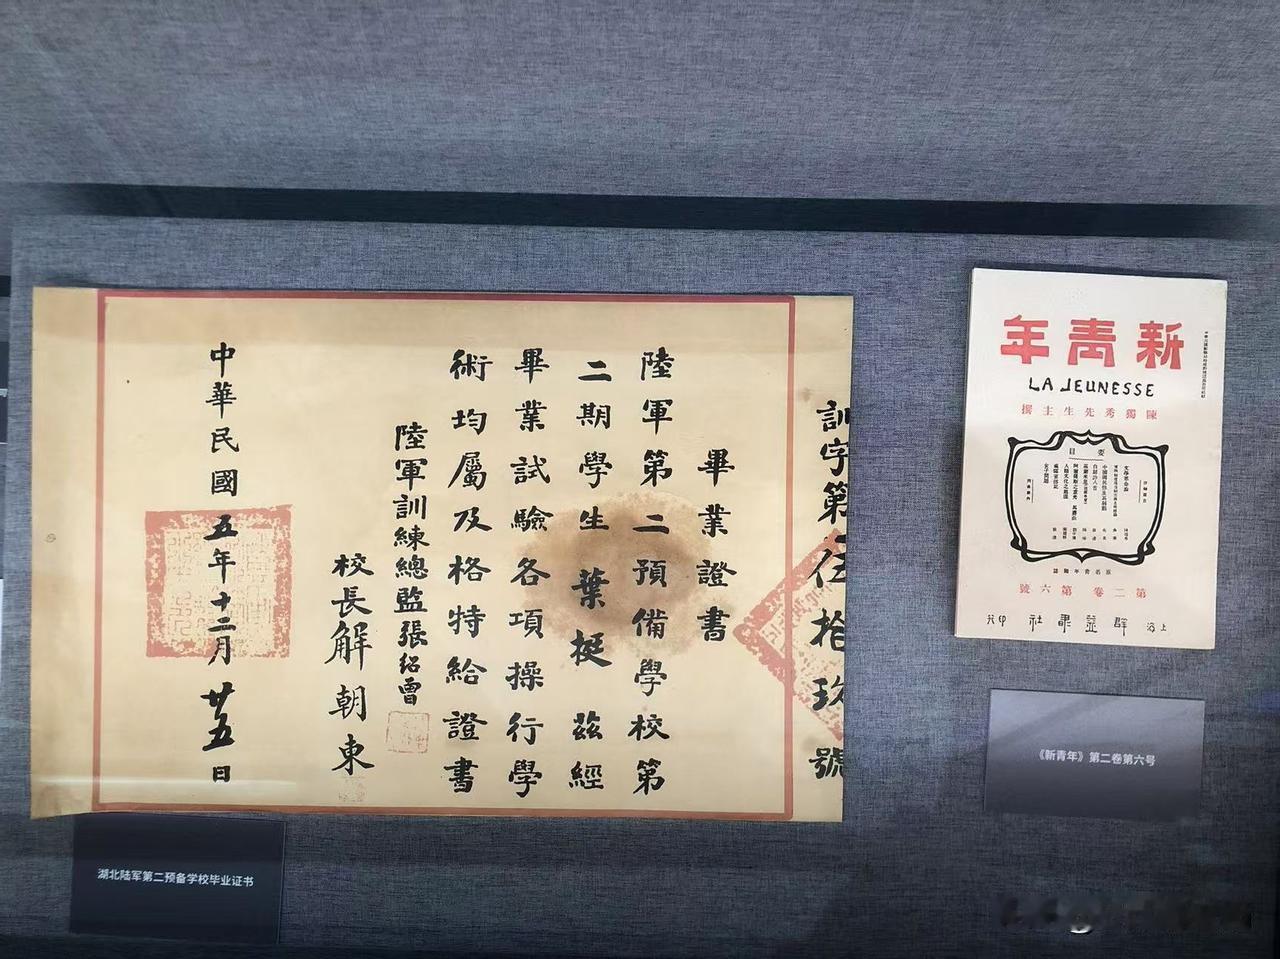 訓字第伍拾玖號
畢業證書
陸軍第二預備學校第
二期學生葉挺茲經
畢業試驗各項操行學
術均屬及格特給證書
陸軍訓練總監張紹曾
校長解朝東
中華民國五年十二月廿五日
湖北陆军第二预备学校毕业证书
新青年
LA JEUNESSE
陳獨秀先生主撰
要目
文學革命論
女子問題
原名青年雜誌
第二卷 第六號
上海羣益書社印行
《新青年》第二卷第六号